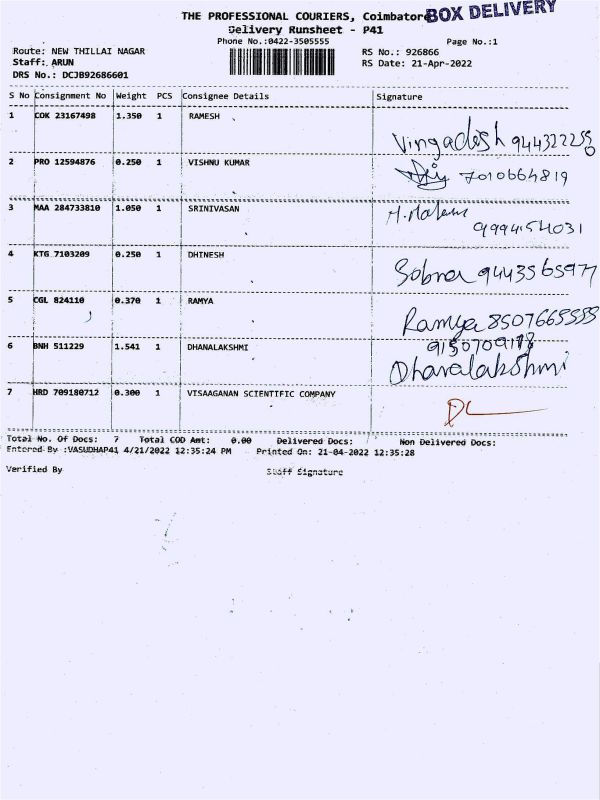 THE PROFESSIONAL COURIERS, Coimbatore
BOX DELIVERY
Delivery Runsheet - P41
Phone No.:0422-3505555
Page No.:1
Route: NEW THILLAI NAGAR
RS No.: 926866
Staff: ARUN
RS Date: 21-Apr-2022
DRS No.: DCJB92686601
S No Consignment No Weight PCS Consignee Details Signature
1 COK 23167498 1.350 1 RAMESH
Vingadesh
2 PRO 12594876 0.250 1 VISHNU KUMAR
7010664819
3 MAA 284733810 1.050 1 SRINIVASAN
9994154031
4 KTG 7103209 0.250 1 DHINESH
9443565977
5 CGL 824110 0.370 1 RAMYA
Ramya 8507665555
6 BNH 511229 1.541 1 DHANALAKSHMI
Dhanalakshmi
7 HRD 709180712 0.300 1 VISAAGANAN SCIENTIFIC COMPANY
Total No. Of Docs: 7 Total COD Amt: 0.00 Delivered Docs: Non Delivered Docs:
Entered By :VASUDHAP41 4/21/2022 12:35:24 PM Printed On: 21-04-2022 12:35:28
Verified By Staff Signature